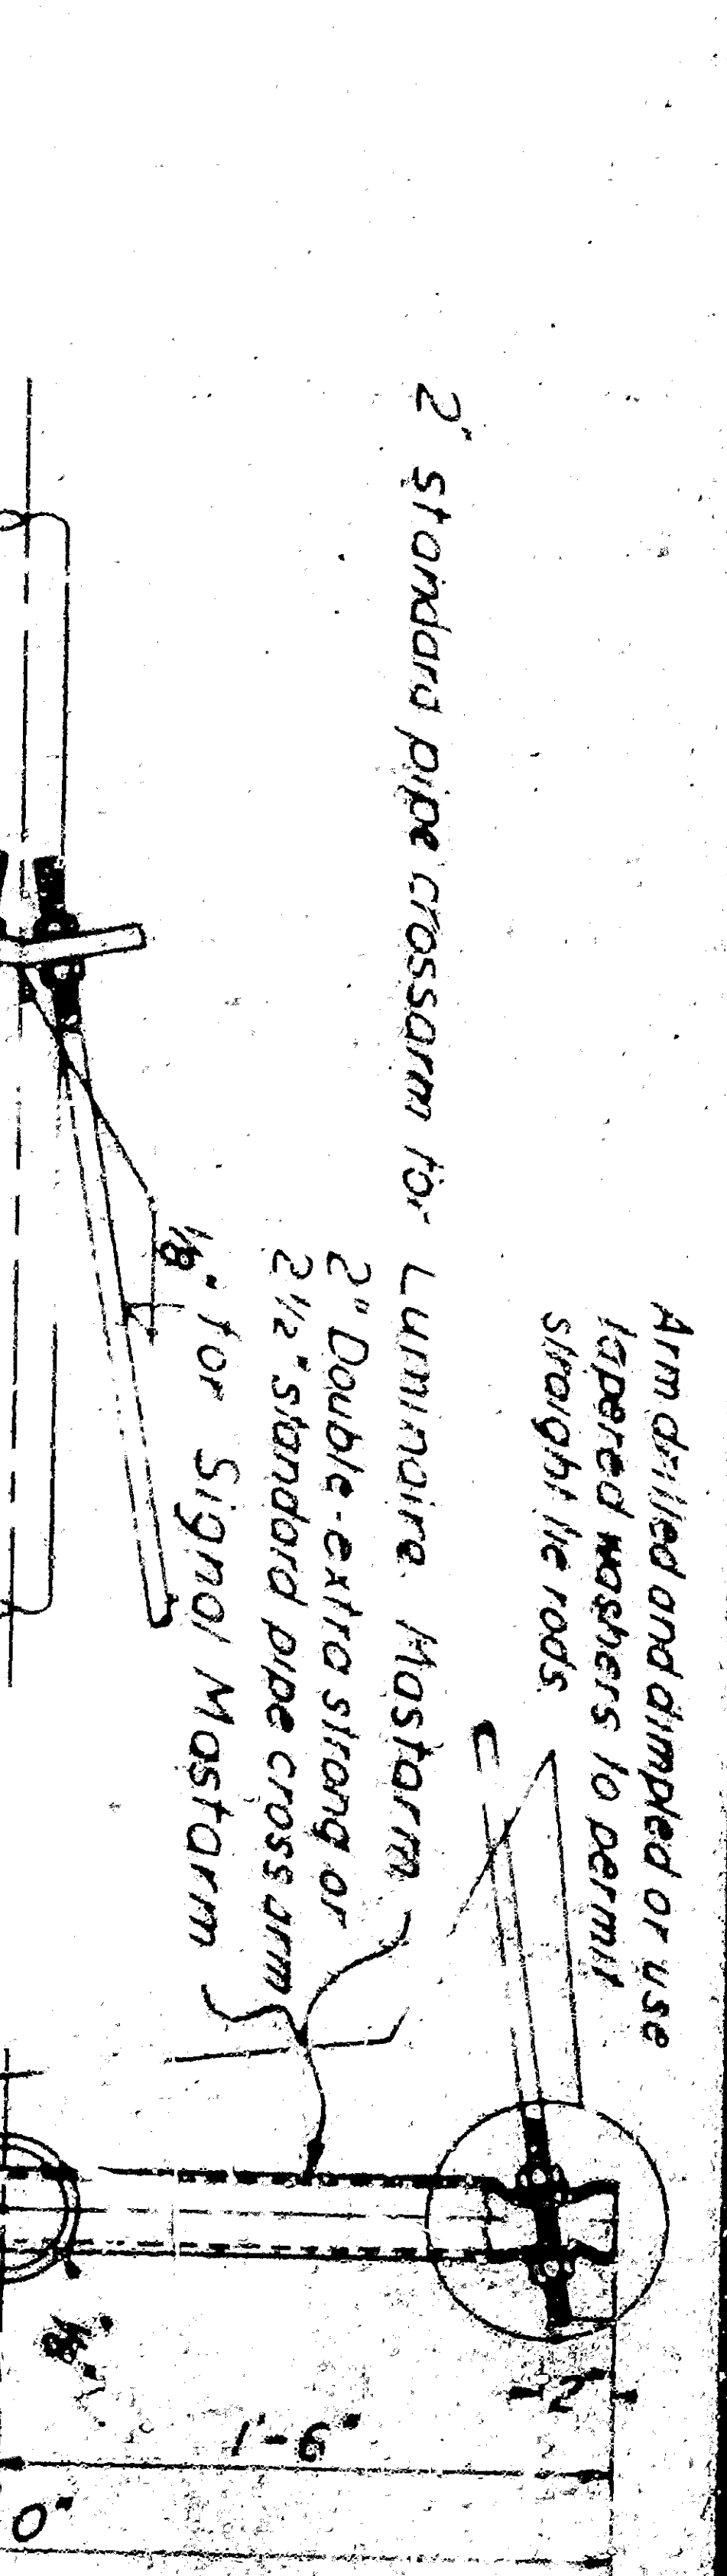 Arm drilled and dimpled or use
tapered washers to permit
straight tie rods
2" standard pipe crossarm for Luminaire Mastarm
2" Double-extra strong or
2 1/2" standard pipe cross arm
for Signal Mastarm
1/8"
2"
1'-6"
0"